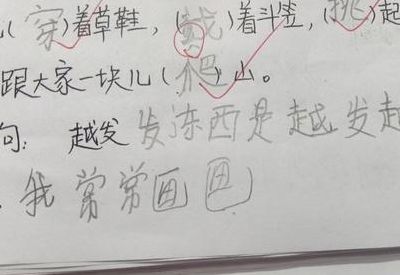 (穿)着草鞋，(戴)着斗笠，(挑)起
跟大家一块儿(爬)山。
句：越发 发东西是越发越
我常常画画